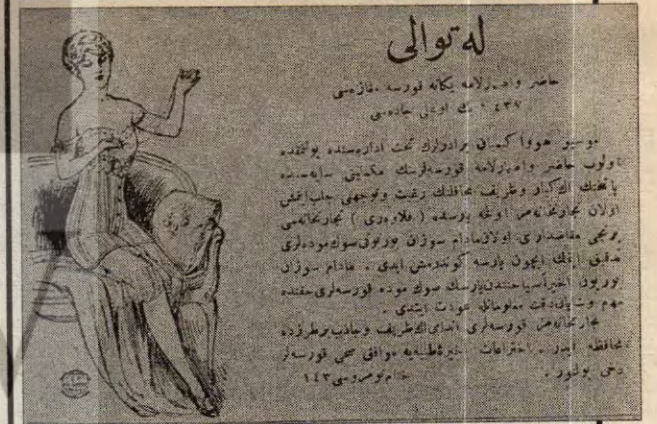 له توالی
حاضر و اصمارلامه یكانه قورسه مغازه‌سی
٤٣٧ بك اوغلی جاده‌سی
موسیو هوواكمیان برادرلرك تحت اداره‌سنده بولنمقده
اولوب حاضر و اصمارلامه قورسه‌لرینك مكملیتی سایه‌سنده
پایتختك اك كبار و ظریف محافلنك رغبت و توجهنی جلب ایتمش
اولان تجارتخانه‌مز اولجه پارسده ( ) تجارتخانه‌سی
برنجی مقاصداری اولان مادام سوزان بوربونی صوك موده‌لری
تدقیق ایتمك ایچون پارسه كوندرمش ایدی . مادام سوزان
بوربون اخیراً سیاحتندن پارسك صوك موده قورسه‌لری حقنده
مهم و شایان دقت معلوماتله عودت ایتدی .
تجارتخانه‌مز قورسه‌لری اك ظریف و جاذب بر طرزده
محافظه ایدر . اختراعات اخیرهٔ طبیه‌یه موافق صحی قورسه‌لر
دخی بولنور . نومروسی ١٤٣